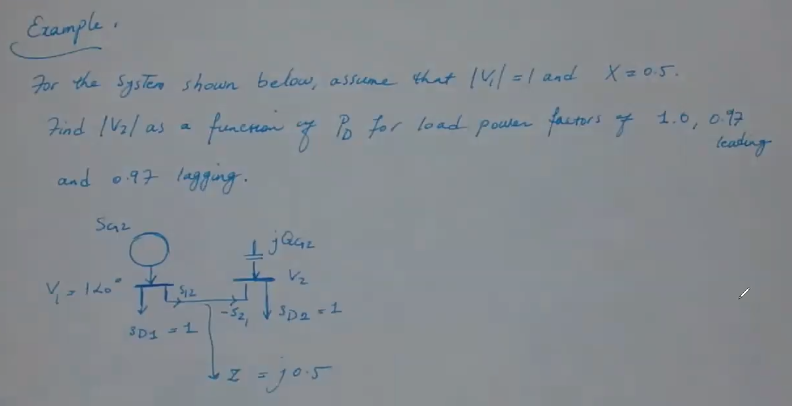 Example.
For the system shown below, assume that |V₁| = 1 and X = 0.5.
Find |V₂| as a function of P_D for load power factors of 1.0, 0.97
leading
and 0.97 lagging.
S_G2
jQ_G2
V₂
V₁ = 1∠0°
S₁₂
-S₂₁
S_D2 = 1
S_D1 = 1
Z = j0.5